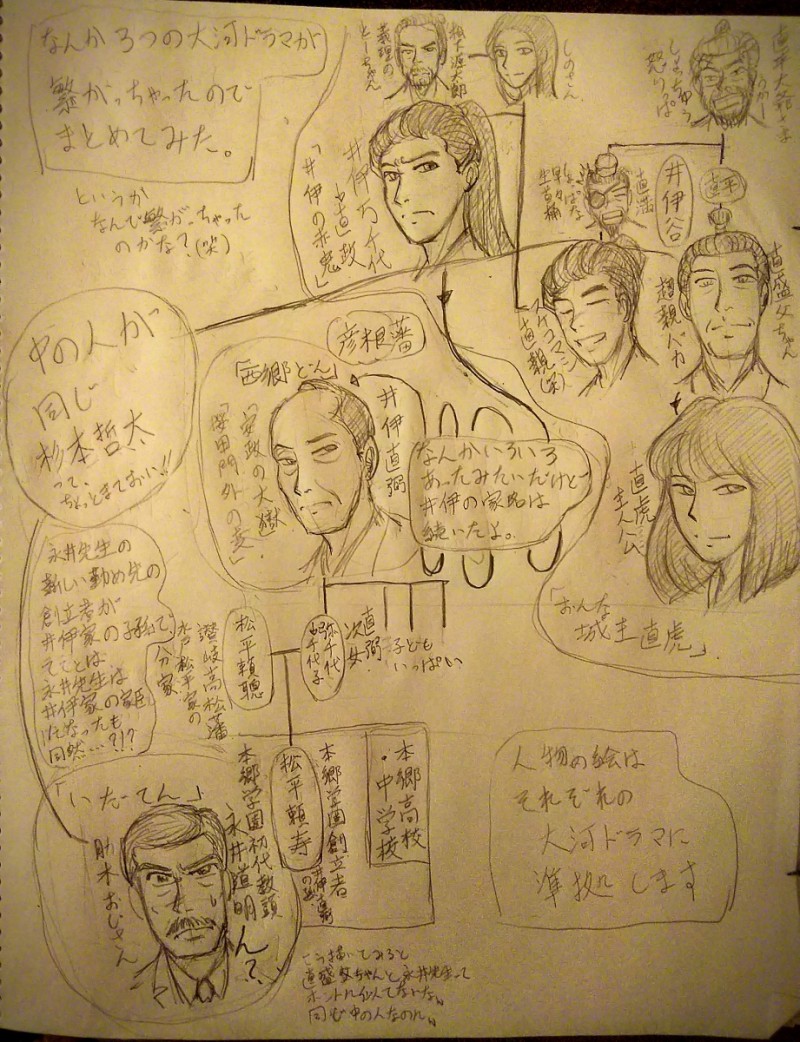 なんか3つの大河ドラマが
繋がっちゃったので
まとめてみた。
というか
なんで繋がっちゃった
のかな?(笑)
義理の
とーちゃん
松下源太郎
しのさん
直平大爺さま
しょっちゅう
怒りっぱ
井伊万千代
→直政
「井伊の赤鬼」
井伊谷
直満
直平
直盛父ちゃん
超親バカ
直親(笑)
直虎
主人公
「おんな
城主 直虎」
中の人が
同じ
杉本哲太
って、
ちょっとまておい!!
彦根藩
「西郷どん」
井伊直弼
「安政の大獄」
「桜田門外の変」
なんかいろいろ
あったみたいだけど
井伊の家名は
続いたよ。
永井先生の
新しい勤め先の
創立者が
井伊家の子孫で
てことは
永井先生は
井伊家の家臣
になったも
同然…?!?
松平頼聰
讃岐高松藩
水戸松平家の
分家
弥千代
千代子
直弼
次女
子ども
いっぱい
松平頼寿
本郷学園創立者
本郷高校
・中学校
「いだてん」
肋木おじさん
本郷学園初代教頭
永井道明
ん?
人物の絵は
それぞれの
大河ドラマに
準拠します
こう描いてみると
直盛父ちゃんと永井先生って
ホントに似てないな。
同じ中の人なのに。